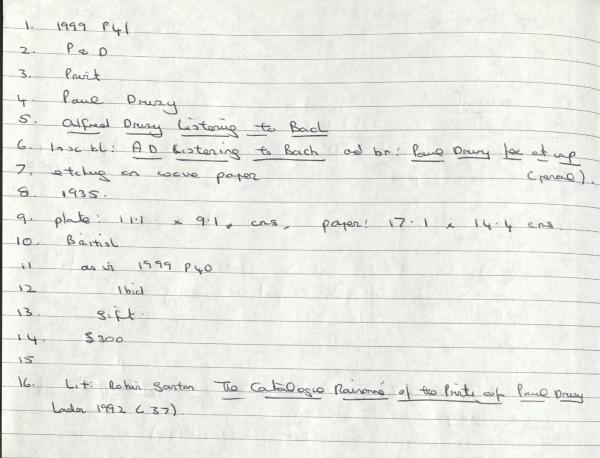 1. 1999 P41
2. P & D
3. Print
4. Paul Drury
5. Alfred Drury Listening to Bach
6. Insc bl: AD Listening to Bach and br: Paul Drury fec et imp
(pencil).
7. etching on wove paper
8. 1935.
9. plate: 11.1 x 9.1, cms, paper: 17.1 x 14.4 cms.
10. British
11 as in 1999 P40
12 Ibid
13. gift.
14. £300
15
16. Lit: Robin Garton The Catalogue Raisonné of the Prints of Paul Drury
London 1992 (37).